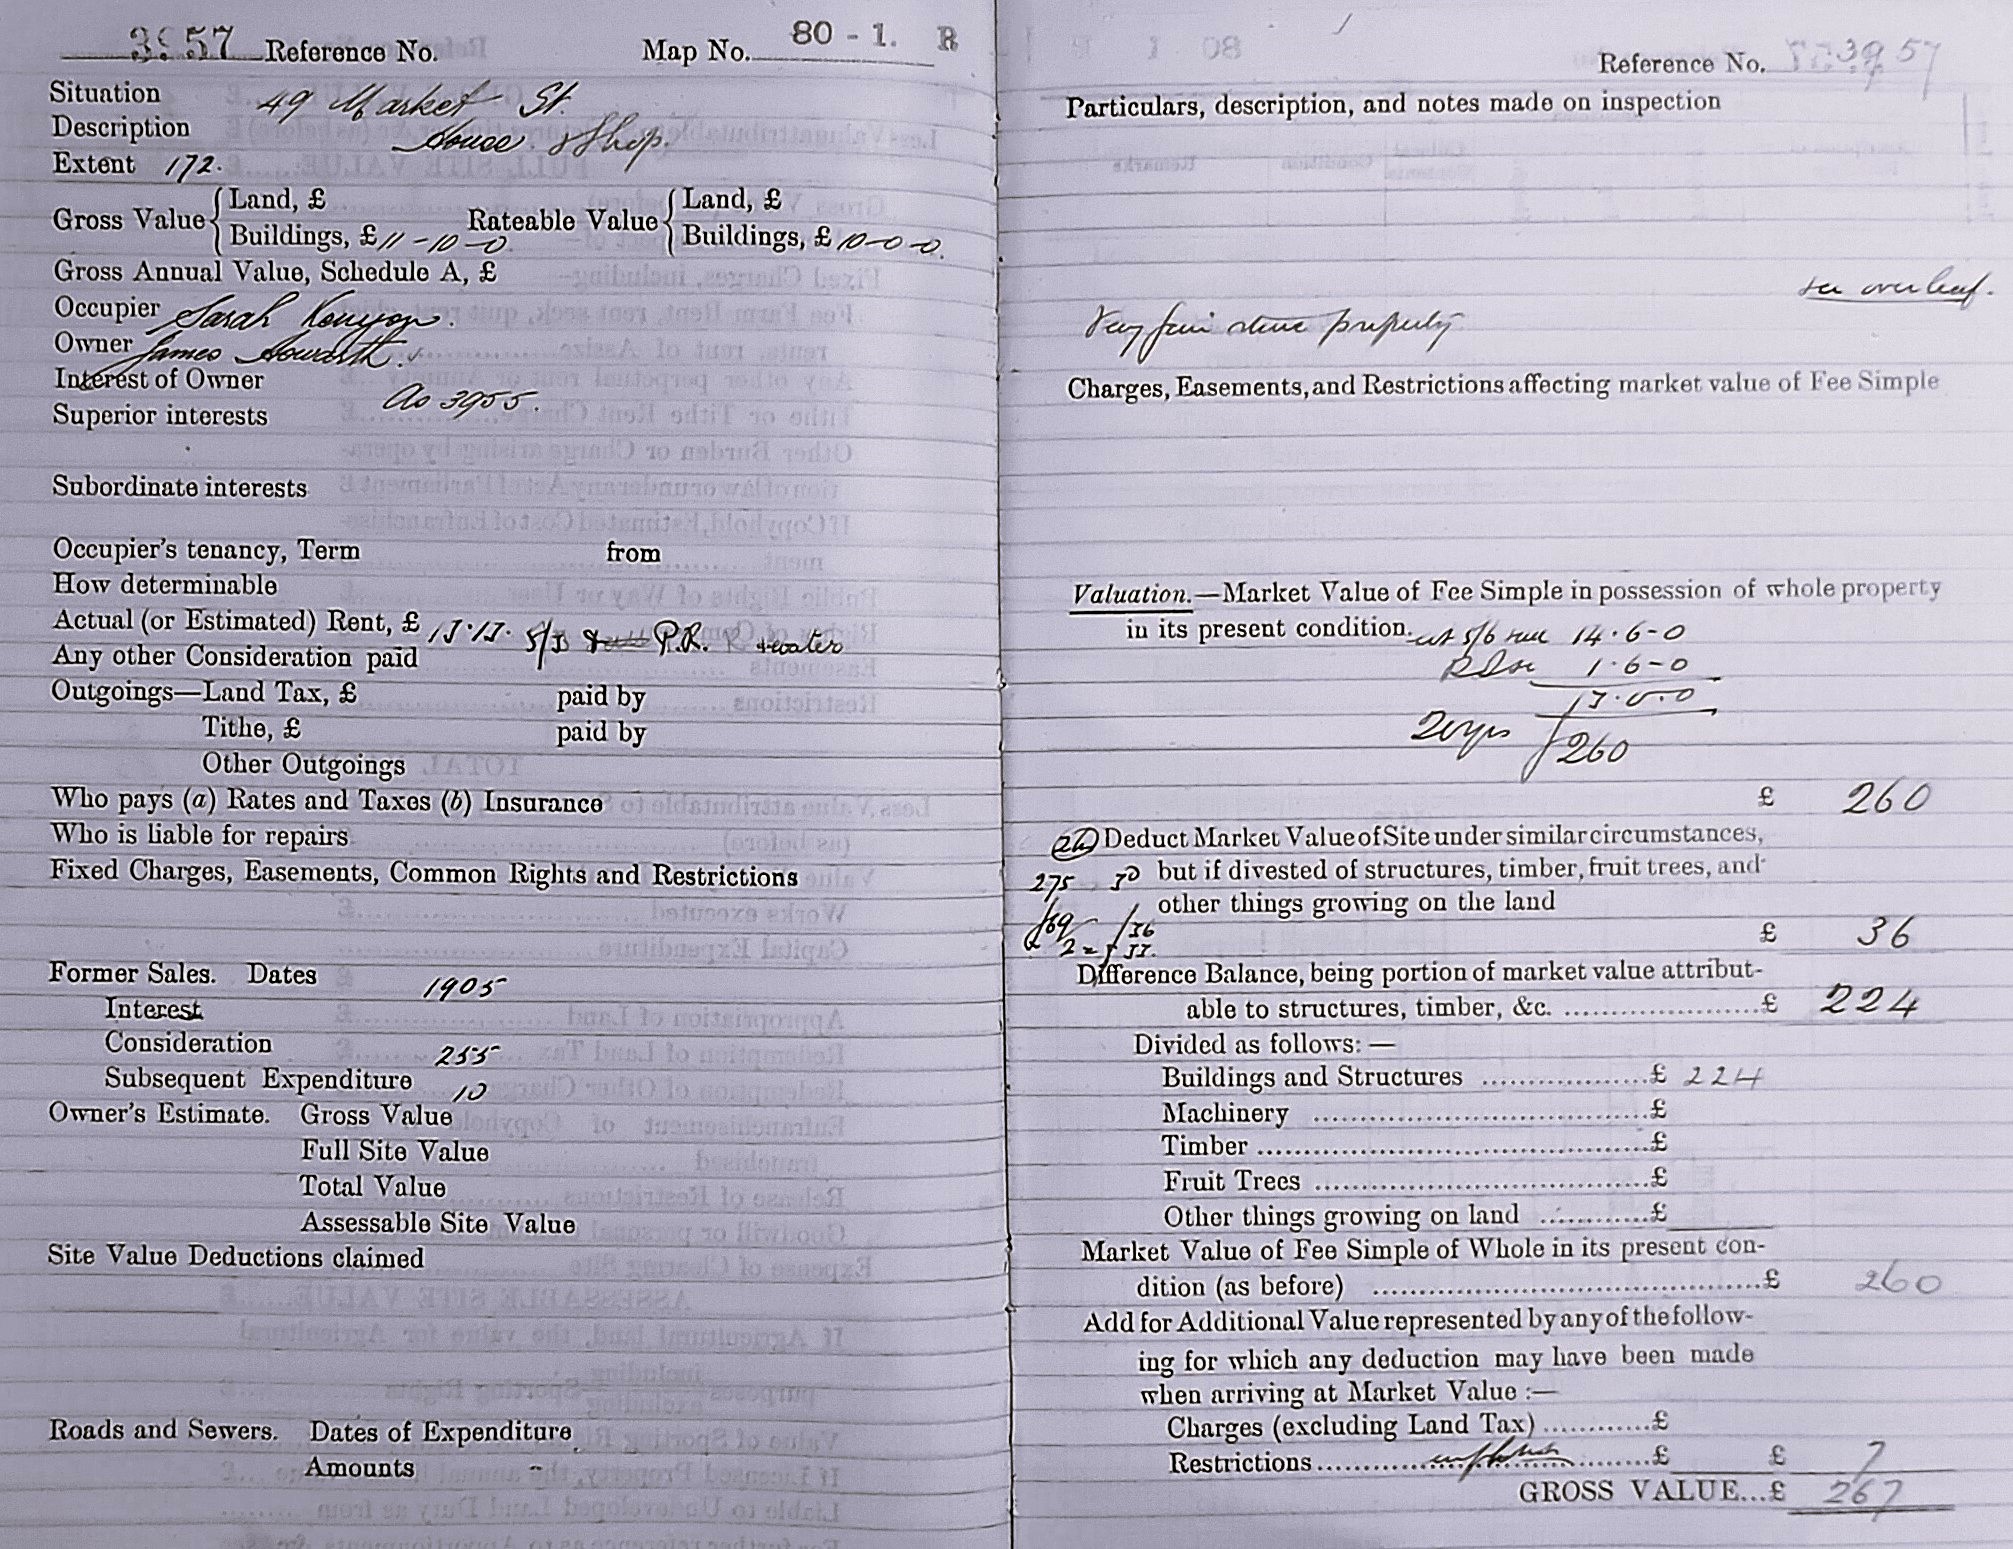 3957 Reference No. Map No. 80 - 1. B
Situation 49 Market St.
Description House & Shop.
Extent 172.
Gross Value { Land, £
Buildings, £ 11-10-0 Rateable Value { Land, £
Buildings, £ 10-0-0.
Gross Annual Value, Schedule A, £
Occupier Sarah Kenyon.
Owner James Howarth.
Interest of Owner
As 3955.
Superior interests
Subordinate interests
Occupier's tenancy, Term from
How determinable
Actual (or Estimated) Rent, £ 13.13. 5/3 P.R. & water
Any other Consideration paid
Outgoings—Land Tax, £ paid by
Tithe, £ paid by
Other Outgoings
Who pays (a) Rates and Taxes (b) Insurance
Who is liable for repairs
Fixed Charges, Easements, Common Rights and Restrictions
Former Sales. Dates 1905
Interest
Consideration 255
Subsequent Expenditure 10
Owner's Estimate. Gross Value
Full Site Value
Total Value
Assessable Site Value
Site Value Deductions claimed
Roads and Sewers. Dates of Expenditure
Amounts
Reference No. 3957
Particulars, description, and notes made on inspection
see overleaf.
Very fair stone property
Charges, Easements, and Restrictions affecting market value of Fee Simple
Valuation.—Market Value of Fee Simple in possession of whole property
in its present condition. at 5/6 14.6-0
1.6-0
13.0.0
20 yrs 260
£ 260
Deduct Market Value of Site under similar circumstances,
275 but if divested of structures, timber, fruit trees, and
other things growing on the land
169 / 36
£ 36
2 = 33.
Difference Balance, being portion of market value attribut-
able to structures, timber, &c. ..................... £ 224
Divided as follows: —
Buildings and Structures .................. £ 224
Machinery .................................... £
Timber .......................................... £
Fruit Trees .................................... £
Other things growing on land ............ £
Market Value of Fee Simple of Whole in its present con-
dition (as before) ......................................... £ 260
Add for Additional Value represented by any of the follow-
ing for which any deduction may have been made
when arriving at Market Value :—
Charges (excluding Land Tax) ............ £
Restrictions .............................. £ £ 7
GROSS VALUE... £ 267